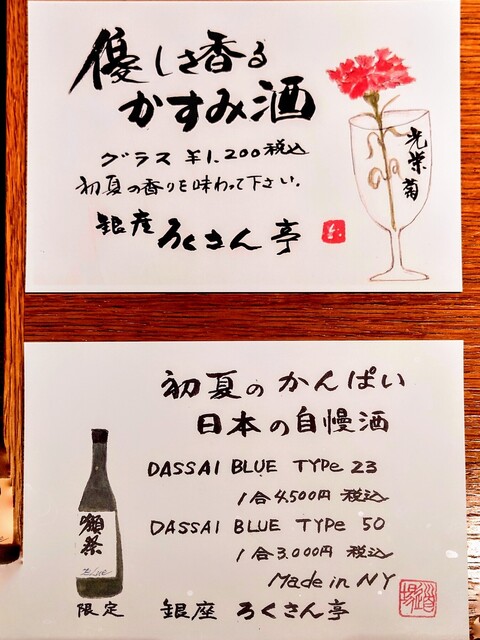 優しさ香る
かすみ酒
グラス ¥1,200税込
初夏の香りを味わって下さい。
銀座 ろくさん亭
光栄菊
初夏のかんぱい
日本の自慢酒
DASSAI BLUE TYPe 23
1合4,500円 税込
DASSAI BLUE TYPe 50
1合3,000円 税込
Made in NY
獺祭
Blue
限定
銀座 ろくさん亭